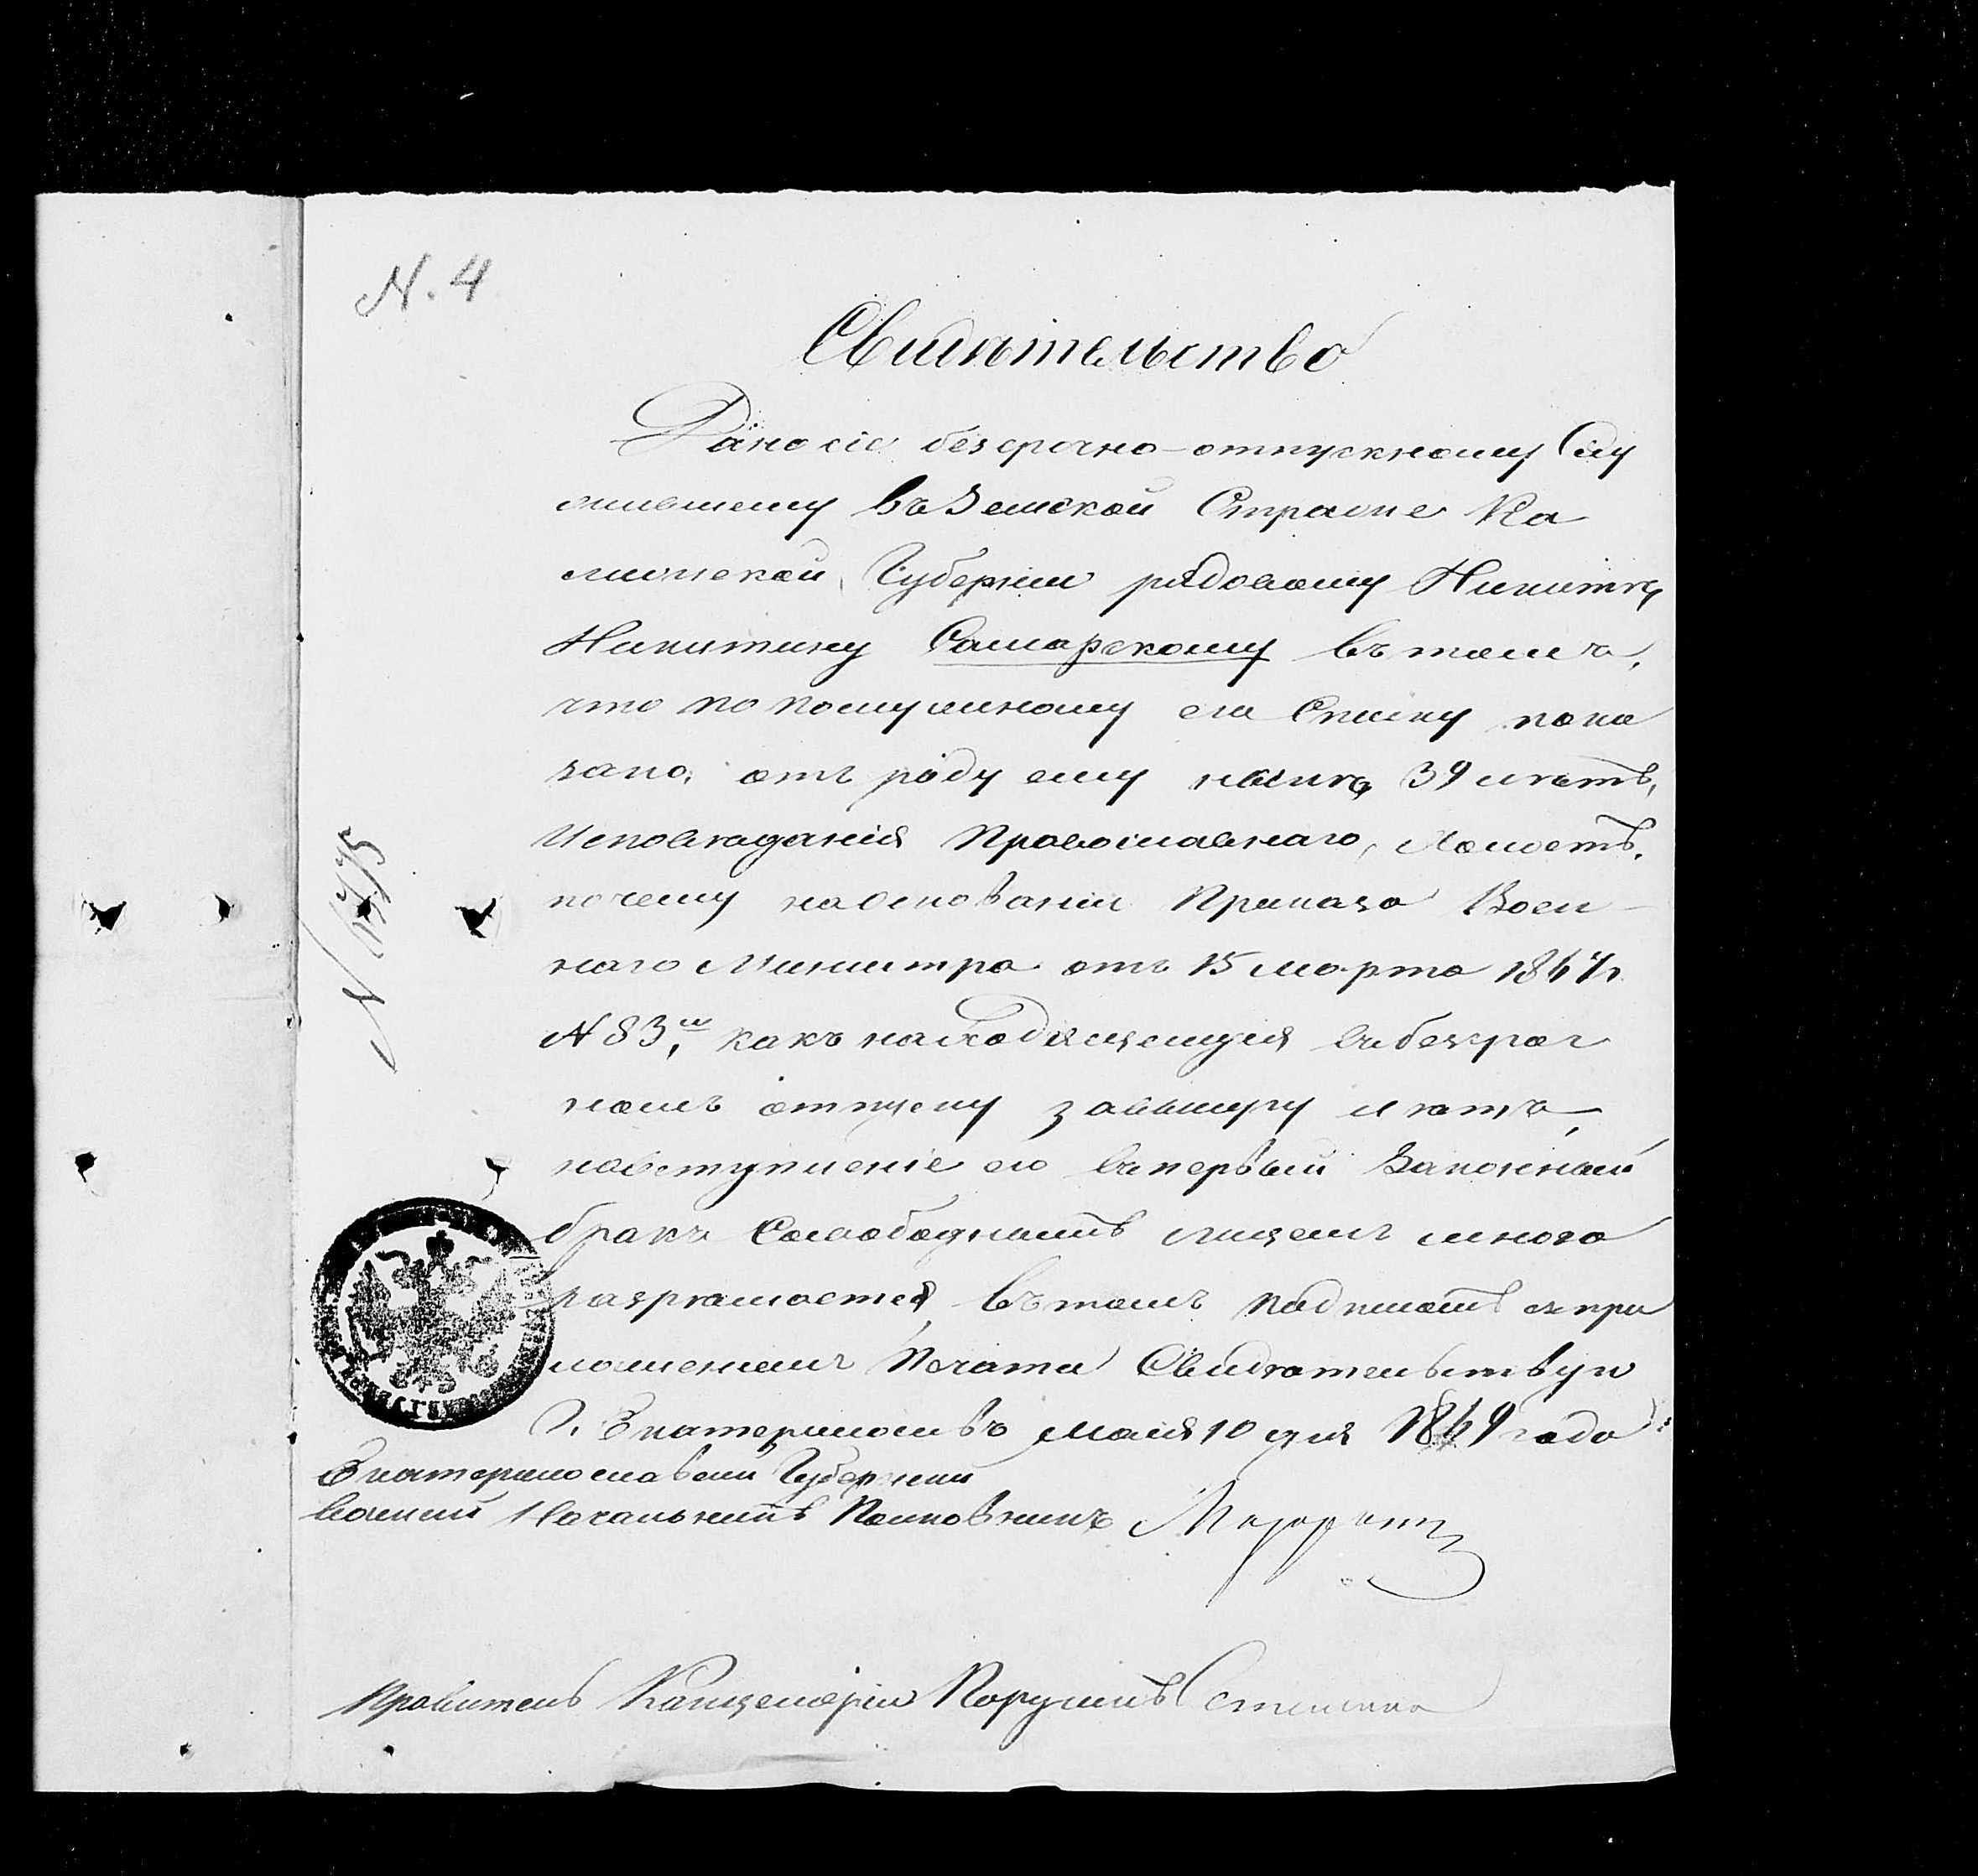 N. 4
Свидѣтельство
Дано сіе безсрочно-отпускному Слу
жившему въ Земской Стражѣ Ка
лишской Губерніи рядовому Никитѣ
Никитину Самарскому въ томъ,
что по послужному его Списку пока
зано, отъ роду ему нынѣ 39 лѣтъ,
Исповѣданія Православнаго, Холостъ,
почему на основаніи Приказа Воен-
наго Министра отъ 15 марта 1867 г.
N 83, какъ находящемуся въ безсроч
номъ отпуску
на вступленіе его въ первый Законный
бракъ Съ свободнымъ лицемъ мною
разрѣшается, въ томъ подписомъ съ при
ложеніемъ Печати Свидѣтельствую
Г. Екатеринославъ мая 10 дня 1869 года
Екатеринославскій Губернскій
Воинскій Начальникъ Полковникъ
Правитель Канцеляріи Поручикъ